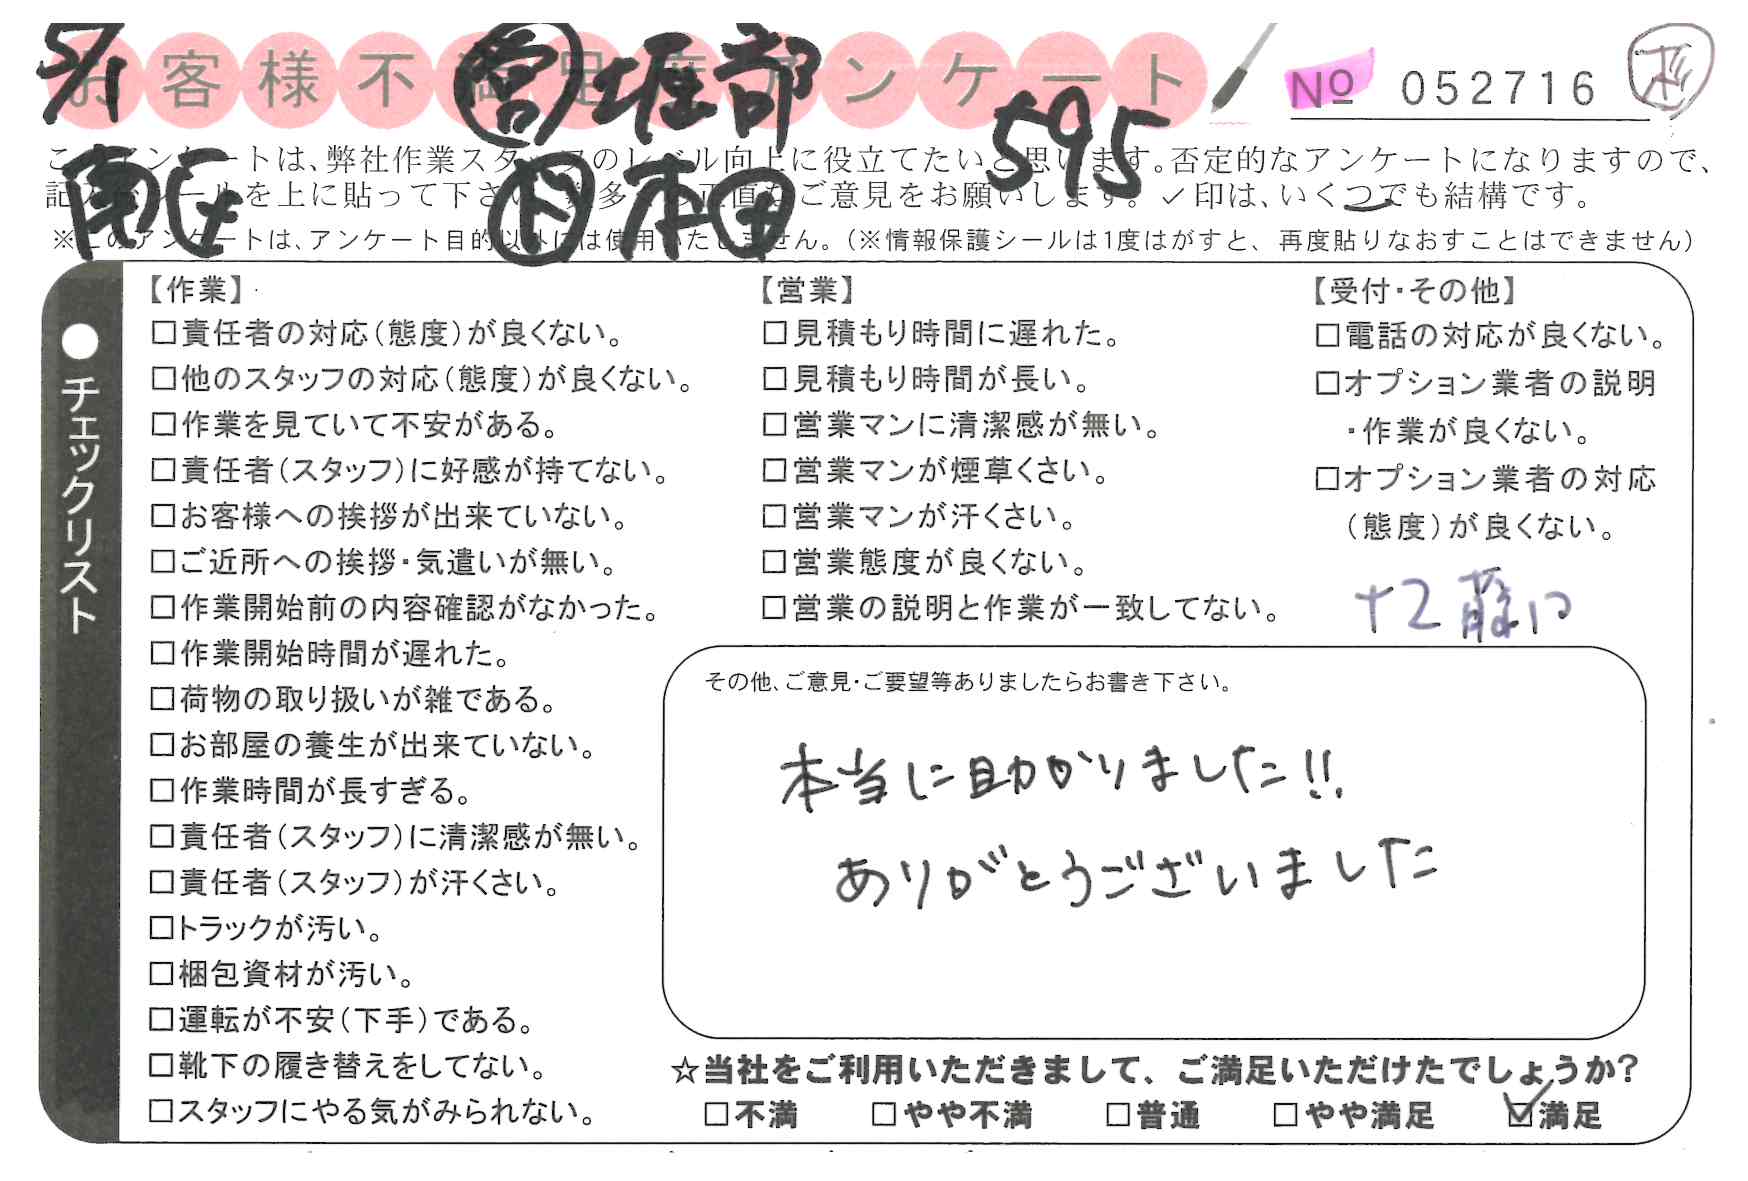 5/1
お客様不満足度アンケート
営 堀部
№ 052716
杉
595
南区
本田
このアンケートは、弊社作業スタッフのレベル向上に役立てたいと思います。否定的なアンケートになりますので、
記入後シールを上に貼って下さい。数多くの正直なご意見をお願いします。✓印は、いくつでも結構です。
※このアンケートは、アンケート目的以外には使用いたしません。（※情報保護シールは1度はがすと、再度貼りなおすことはできません）
●チェックリスト
【作業】
□責任者の対応（態度）が良くない。
□他のスタッフの対応（態度）が良くない。
□作業を見ていて不安がある。
□責任者（スタッフ）に好感が持てない。
□お客様への挨拶が出来ていない。
□ご近所への挨拶・気遣いが無い。
□作業開始前の内容確認がなかった。
□作業開始時間が遅れた。
□荷物の取り扱いが雑である。
□お部屋の養生が出来ていない。
□作業時間が長すぎる。
□責任者（スタッフ）に清潔感が無い。
□責任者（スタッフ）が汗くさい。
□トラックが汚い。
□梱包資材が汚い。
□運転が不安（下手）である。
□靴下の履き替えをしてない。
□スタッフにやる気がみられない。
【営業】
□見積もり時間に遅れた。
□見積もり時間が長い。
□営業マンに清潔感が無い。
□営業マンが煙草くさい。
□営業マンが汗くさい。
□営業態度が良くない。
□営業の説明と作業が一致してない。
【受付・その他】
□電話の対応が良くない。
□オプション業者の説明
・作業が良くない。
□オプション業者の対応
（態度）が良くない。
その他、ご意見・ご要望等ありましたらお書き下さい。
本当に助かりました!!
ありがとうございました
☆当社をご利用いただきまして、ご満足いただけたでしょうか？
□不満 □やや不満 □普通 □やや満足 ☑満足